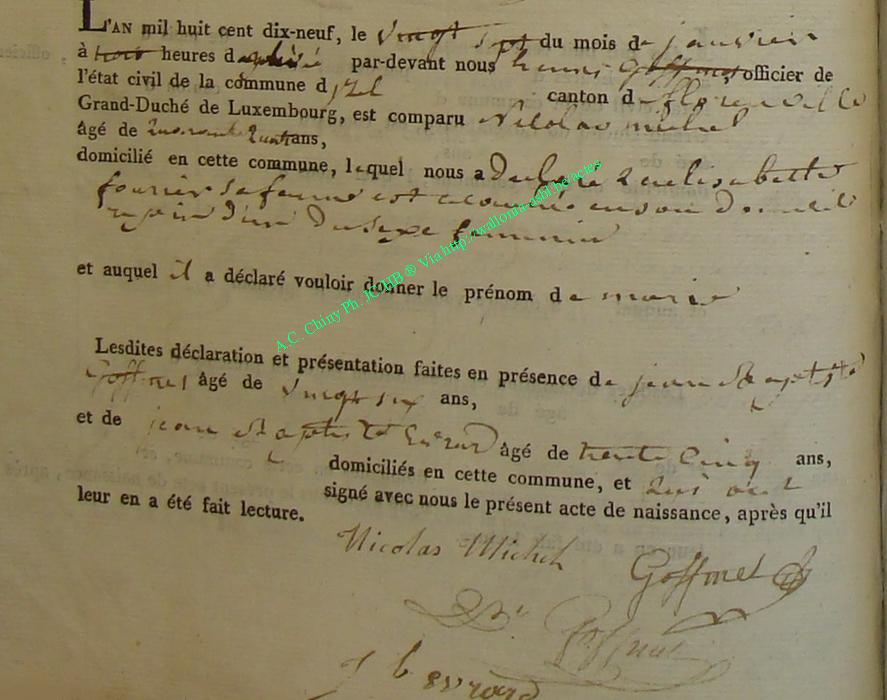 L'AN mil huit cent dix-neuf, le vingt sept du mois de janvier
à trois heures d par-devant nous henri Goffinet, officier de
l'état civil de la commune d canton de florenville
Grand-Duché de Luxembourg, est comparu Nicolas michel
âgé de quarante quatre ans,
domicilié en cette commune, lequel nous a Declaré quelisabette
fourier sa femme est acouchée en son domicil
du sexe feminin
et auquel il a déclaré vouloir donner le prénom de marie
Lesdites déclaration et présentation faites en présence de jean Baptiste
Goffinet âgé de vingt six ans,
et de jean Baptiste Evrard âgé de trente cinq ans,
domiciliés en cette commune, et qui ont
signé avec nous le présent acte de naissance, après qu'il
leur en a été fait lecture.
Nicolas Michel Goffinet
J b evrard
A.C. Chiny Ph. JCHB ® Via http://wallonia-asbl.be/actes